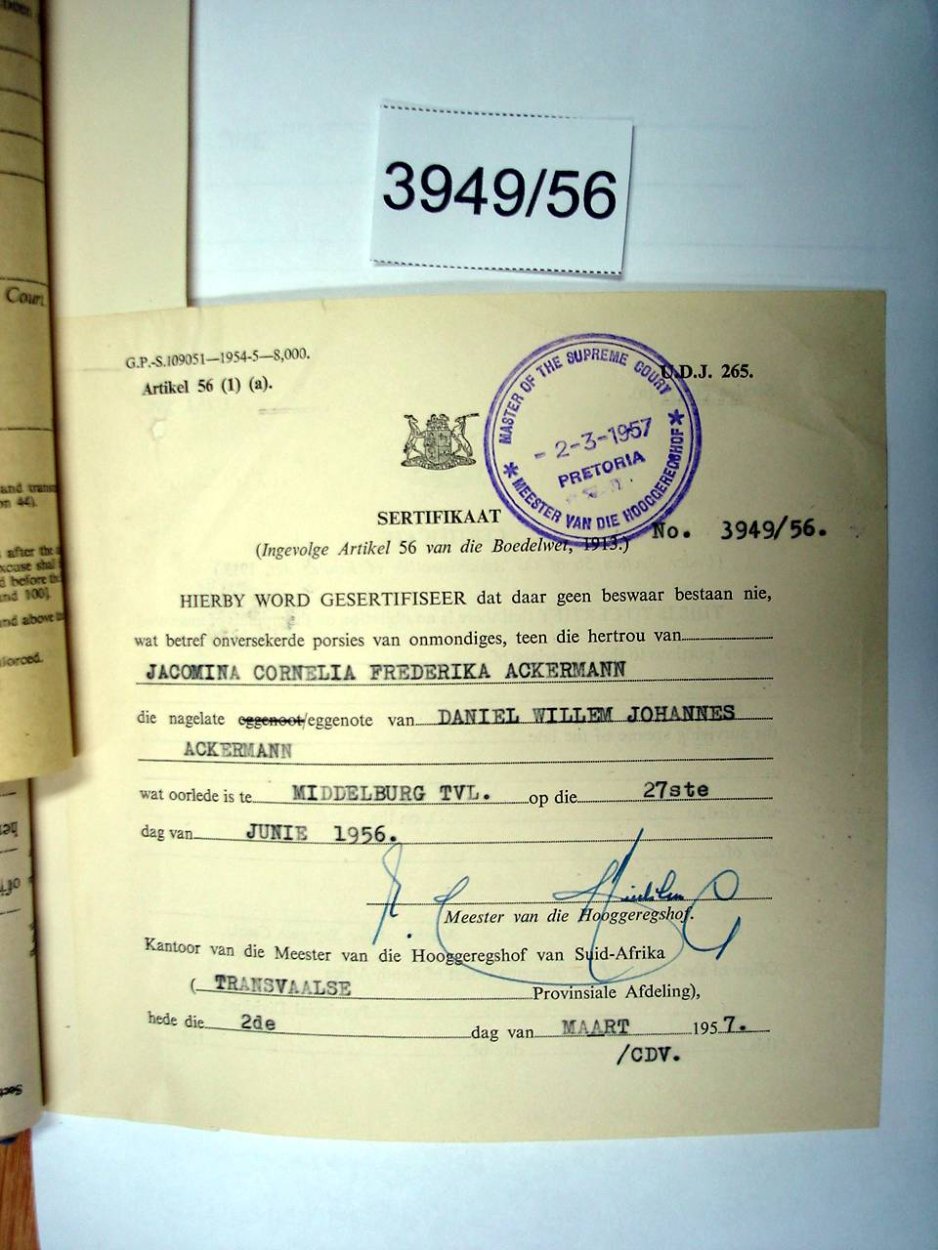 3949/56
Court
and trans
on 44).
after the
excuse shal
d before th
and 100].
and above
G.P.-S.109051—1954-5—8,000.
Artikel 56 (1) (a).
U.D.J. 265.
MASTER OF THE SUPREME COURT
- 2-3-1957
PRETORIA
MEESTER VAN DIE HOOGGEREGSHOF
SERTIFIKAAT
No. 3949/56.
(Ingevolge Artikel 56 van die Boedelwet, 1913.)
HIERBY WORD GESERTIFISEER dat daar geen beswaar bestaan nie,
wat betref onversekerde porsies van onmondiges, teen die hertrou van
JACOMINA CORNELIA FREDERIKA ACKERMANN
die nagelate eggenoot/eggenote van DANIEL WILLEM JOHANNES
ACKERMANN
wat oorlede is te MIDDELBURG TVL. op die 27ste
dag van JUNIE 1956.
Meester van die Hooggeregshof.
Kantoor van die Meester van die Hooggeregshof van Suid-Afrika
(TRANSVAALSE Provinsiale Afdeling),
hede die 2de dag van MAART 1957.
/CDV.